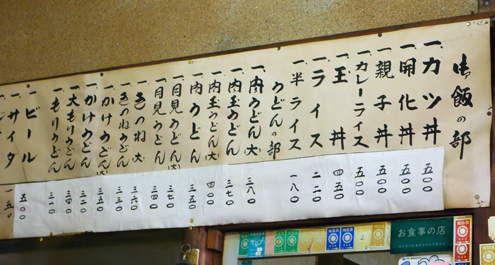 御飯の部
一、カツ丼 五〇〇
一、開化丼 五〇〇
一、親子丼 五〇〇
一、カレーライス 五〇〇
一、玉丼 四五〇
一、ライス 二二〇
一、半ライス 一八〇
うどんの部
一、肉うどん大 三八〇
一、肉玉うどん 三七〇
一、肉玉うどん 四〇〇
一、肉うどん 三五〇
一、月見うどん大 三七〇
一、月見うどん 三四〇
一、きつね大 三六〇
一、きつねうどん 三三〇
一、かけうどん大 三五〇
一、かけうどん 三二〇
一、大もりうどん 三四〇
一、もりうどん 三一〇
一、ビール 五〇〇
サイダ 一五〇
お食事の店